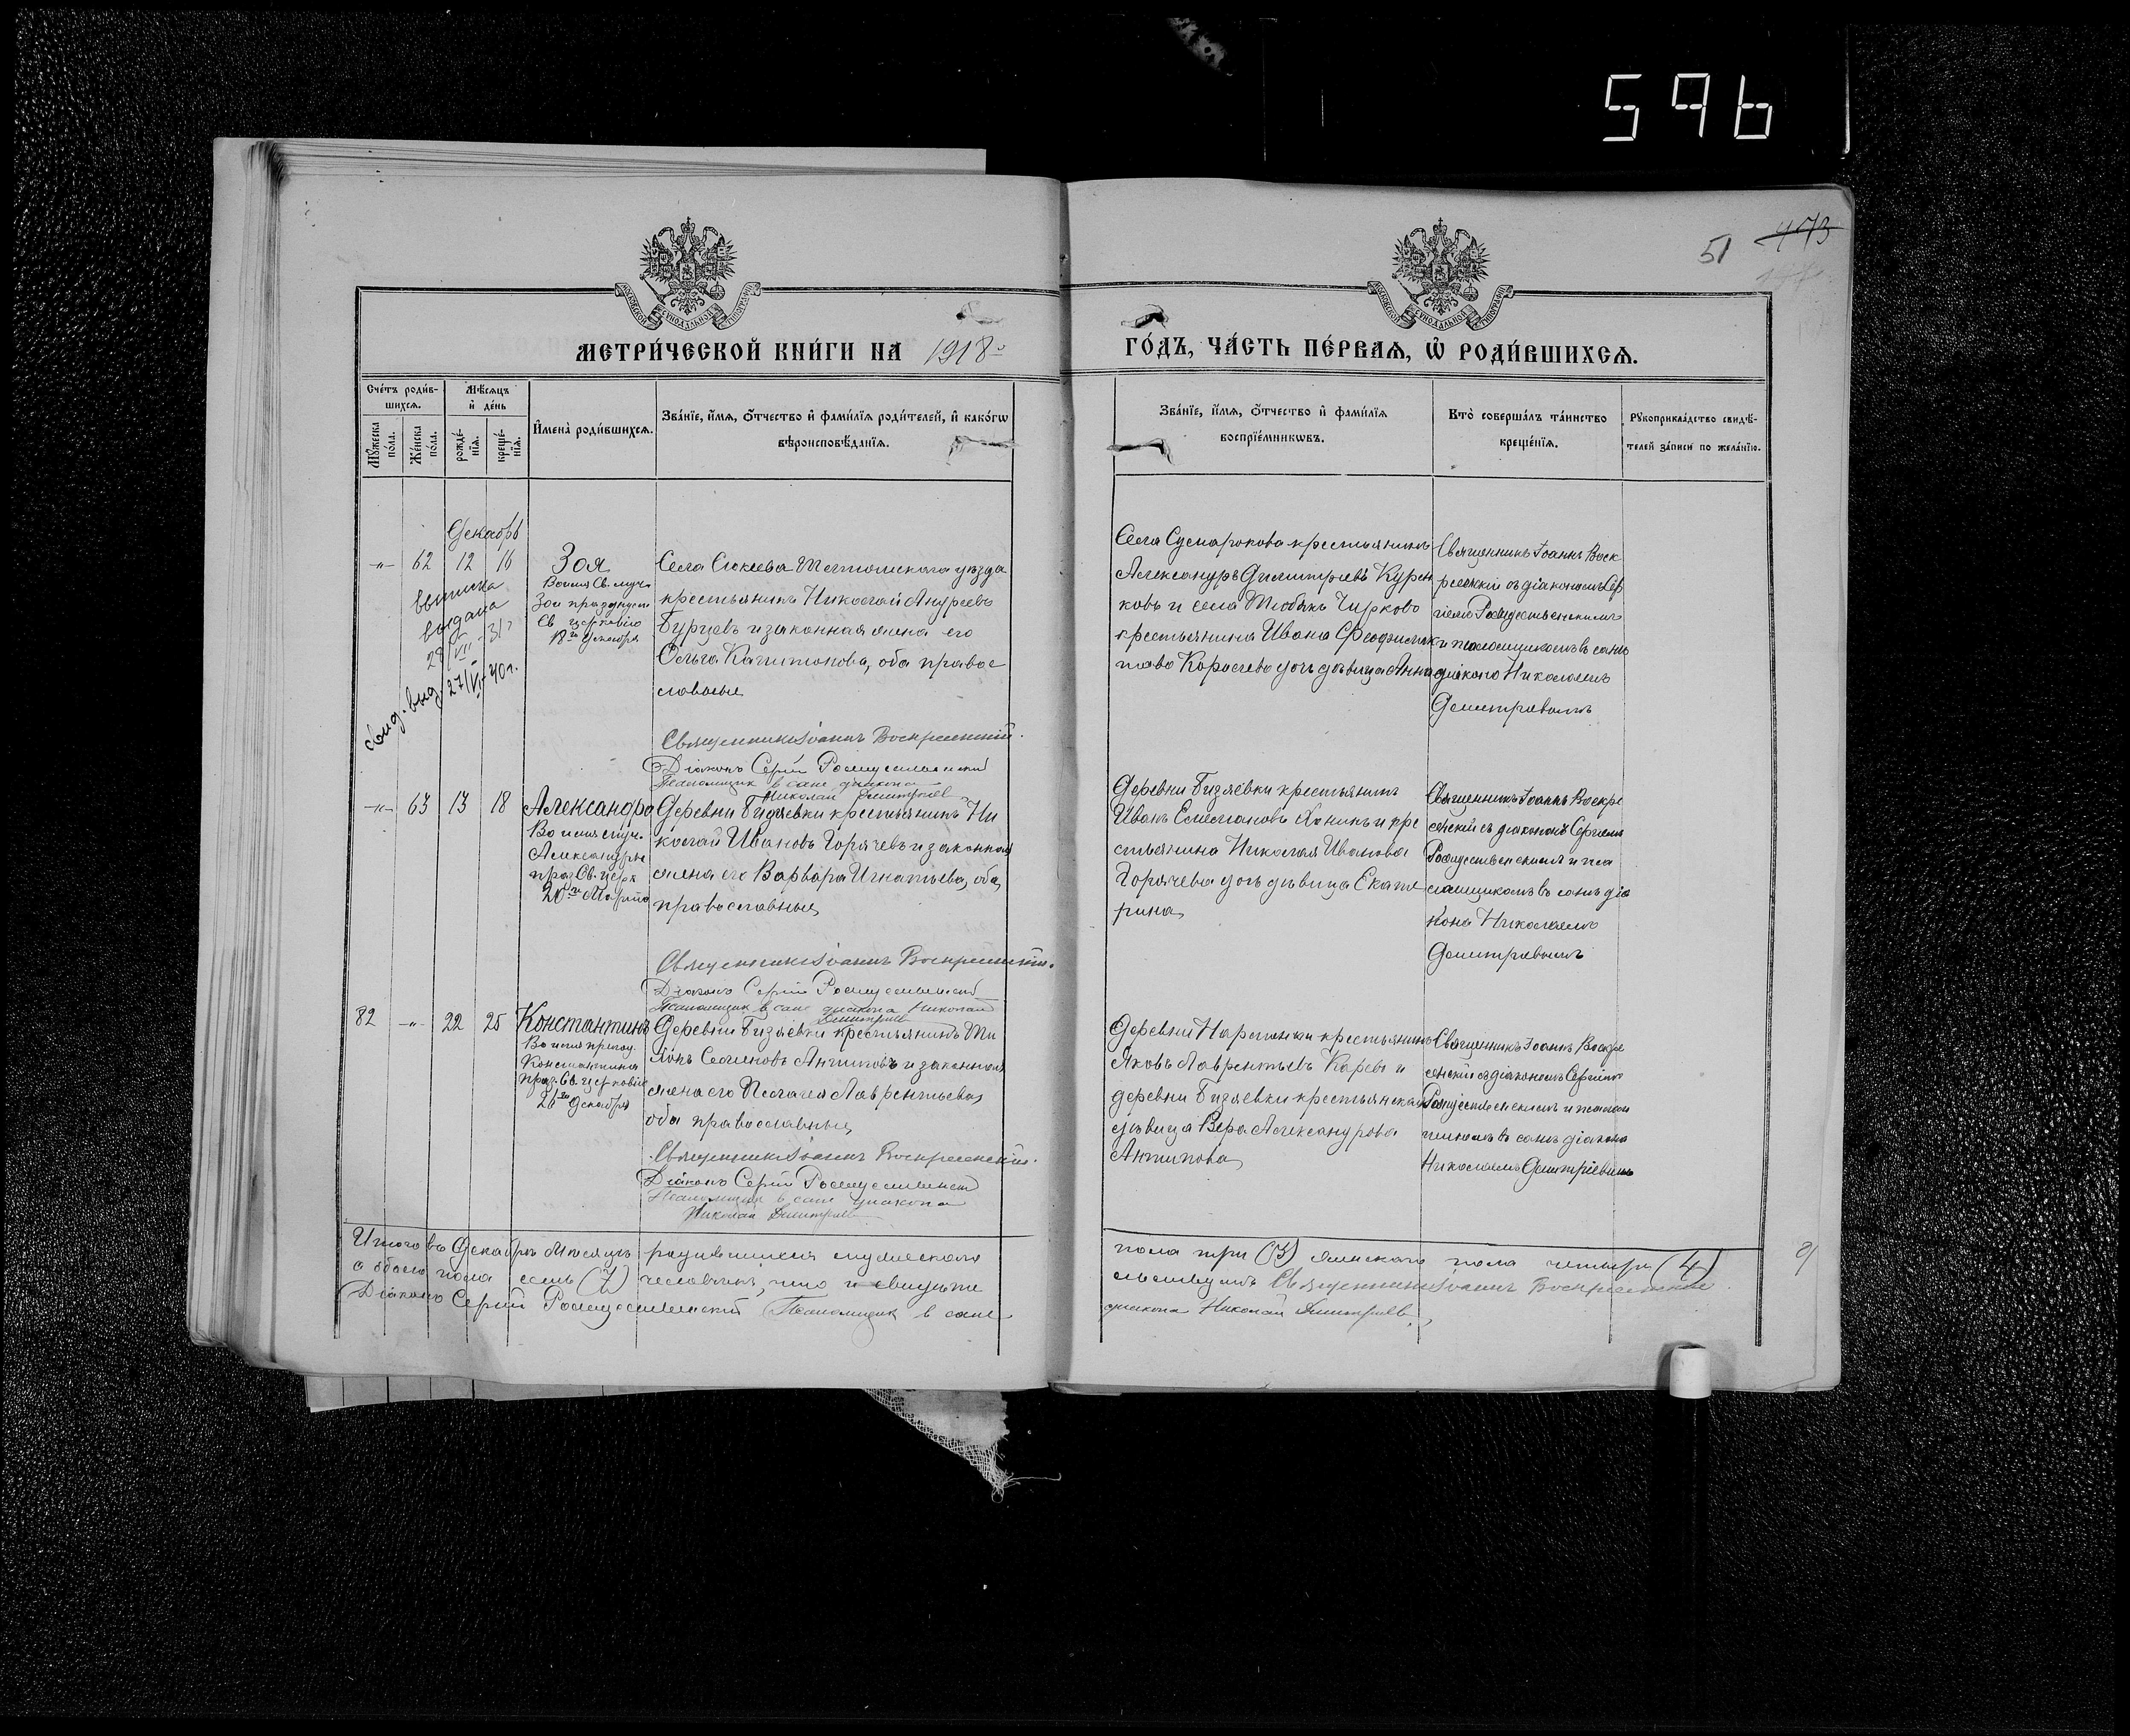 596
51
473
МОСКОВСКОЙ СѴНОДАЛЬНОЙ ТИПОГРАФІИ
МОСКОВСКОЙ СѴНОДАЛЬНОЙ ТИПОГРАФІИ
МЕТРИ́ЧЕСКОЙ КНИ́ГИ НА 1918
ГО́ДЪ, ЧА́СТЬ ПЕ́РВАѦ, Ѽ РОДИ́ВШИХСѦ.
Сче́тъ роди́в-
шихсѧ.
Мꙋ́жеска по́ла.
Же́нска по́ла.
Мѣ́сѧцъ
и҆ де́нь
рожде́-
нїѧ.
креще́-
нїѧ.
И҆мена̀ роди́вшихсѧ.
Зва́нїе, и҆́мѧ, ѻ҆́тчество и҆ фами́лїѧ роди́телей, и҆ како́гѡ
вѣроисповѣ́данїѧ.
Зва́нїе, и҆́мѧ, ѻ҆́тчество и҆ фами́лїѧ
воспрїе́мникѡвъ.
Кто̀ соверша́лъ та́инство
креще́нїѧ.
Рꙋкоприкла́дство свидѣ́-
телей за́писи по жела́нїю.
Декабрь
-"- 62 12 16
Зоя
Во имя Св. муч.
Зои празднуем
Св церковію
18го Декабря
выписка
выдана
28/VII - 31г
Свид. выд. 27/VI-40г.
Села Сюкеева Тетюшскаго уѣзда
крестьянинъ Николай Андреевъ
Бурцевъ и законная жена его
Ольга Капитонова, оба правос
лавные
Священникъ Іоаннъ Воскресенскій.
Діаконъ Сергій Рождественскій
Псаломщик в сане диакона
Николай Димитриев
Села Сумарокова крестьянинъ
Александръ Димитріевъ Курен
ковъ и села Тюбякъ Чирково
крестьянина Ивана
Королева дочь дѣвица Анна
Священникъ Іоаннъ Воск
ресенскій съ діакономъ Сер
гіемъ Рождественскимъ
и псаломщикомъ въ санѣ
діакона Николаемъ
Димитріевымъ
-"- 63 13 18
Александра
Во имя муч.
Александры
праз. Св. церк
20го Марта
Деревни Бизяевки крестьянинъ Ни
колай Ивановъ Горячевъ и законная
жена его Варвара Игнатьева, оба
православные
Священникъ Іоаннъ Воскресенскій.
Діаконъ Сергій Рождественскій
Псаломщик в сане диакона Николай
Димитриев
Деревни Бизяевки крестьянинъ
Иванъ Емельяновъ Янинъ и кре
стьянина Николая Иванова
Горячева дочь дѣвица Екате
рина
Священникъ Іоаннъ Воскре
сенскій съ діакономъ Сергіемъ
Рождественскимъ и пса
ломщикомъ въ санѣ діа
кона Николаемъ
Димитріевымъ
82 -"- 22 25
Константинъ
Во имя препод.
Константина
праз. Св. церковію
26го Декабря
Деревни Бизяевки крестьянинъ Ти
Семеновъ Антиповъ и законная
жена его Пелагея Лаврентьева,
оба православные
Священникъ Іоаннъ Воскресенскій.
Діаконъ Сергій Рождественскій
Псаломщик в сане диакона
Николай Димитриев
Деревни крестьянинъ
Яковъ Лаврентьевъ Каревъ и
деревни Бизяевки крестьянская
дѣвица Вера Александрова
Антипова
Священникъ Іоаннъ Воскре
сенскій съ діакономъ Сергіемъ
Рождественскимъ и псалом
щикомъ въ санѣ діакона
Николаемъ Димитріевымъ
Итого въ Декабрѣ Мѣсяцѣ родившихся мужескаго пола три (3) женскаго пола четыре (4)
а обоего пола семь (7) человѣкъ, что и свидѣте льствуютъ Священникъ Іоаннъ Воскресенскій
Діаконъ Сергій Рождественскій Псаломщик в сане диакона Николай Димитриев.